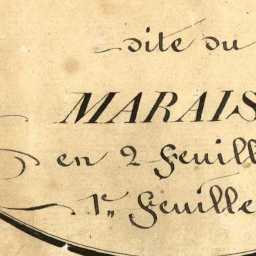 dite du
MARAIS
en 2 Feuill
1re Feuille